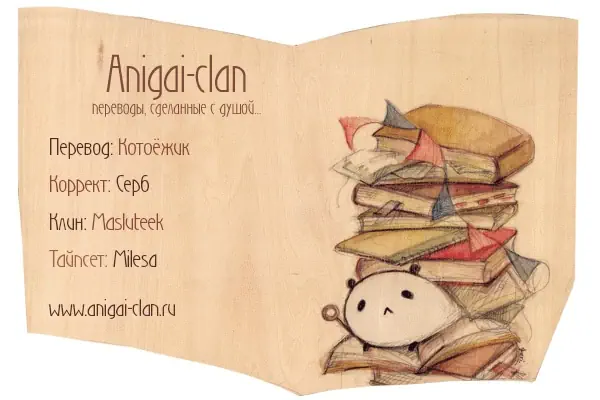 Anigai-clan
переводы, сделанные с душой...
Перевод: Котоёжик
Коррект: Серб
Клин: Masluteek
Тайпсет: Milesa
www.anigai-clan.ru